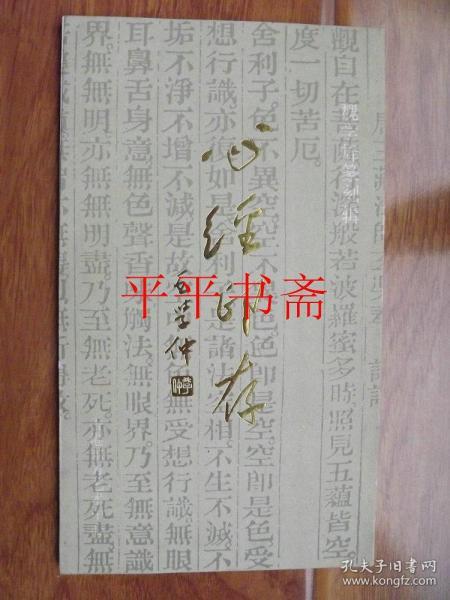 觀自在菩薩行深般若波羅蜜多時照見五蘊皆空
度一切苦厄
舍利子色不異空空不異色色即是空空即是色受
想行識亦復如是舍利子是諸法空相不生不滅不
垢不淨不增不減是故空中無色無受想行識無眼
耳鼻舌身意無色聲香味觸法無眼界乃至無意識
界無無明亦無無明盡乃至無老死亦無老死盡無
心經印存
王學仲
平平书斋
孔夫子旧书网
www.kongfz.com